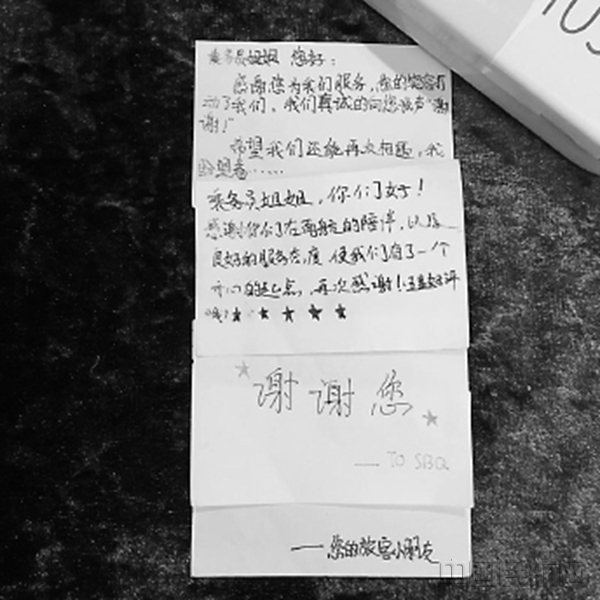 乘务员姐姐 您好：
感谢您为我们服务，您的笑容打
动了我们，我们真诚的向您说声"谢
谢！"
希望我们还能再次相遇，我
盼望着……
乘务员姐姐，你们好！
感谢你们在南航的陪伴，以及
良好的服务态度 使我们有了一个
开心的起点，再次感谢！五星好评
哦！★ ★ ★ ★ ★
谢谢您
—— TO SBQ
——您的旅客小朋友